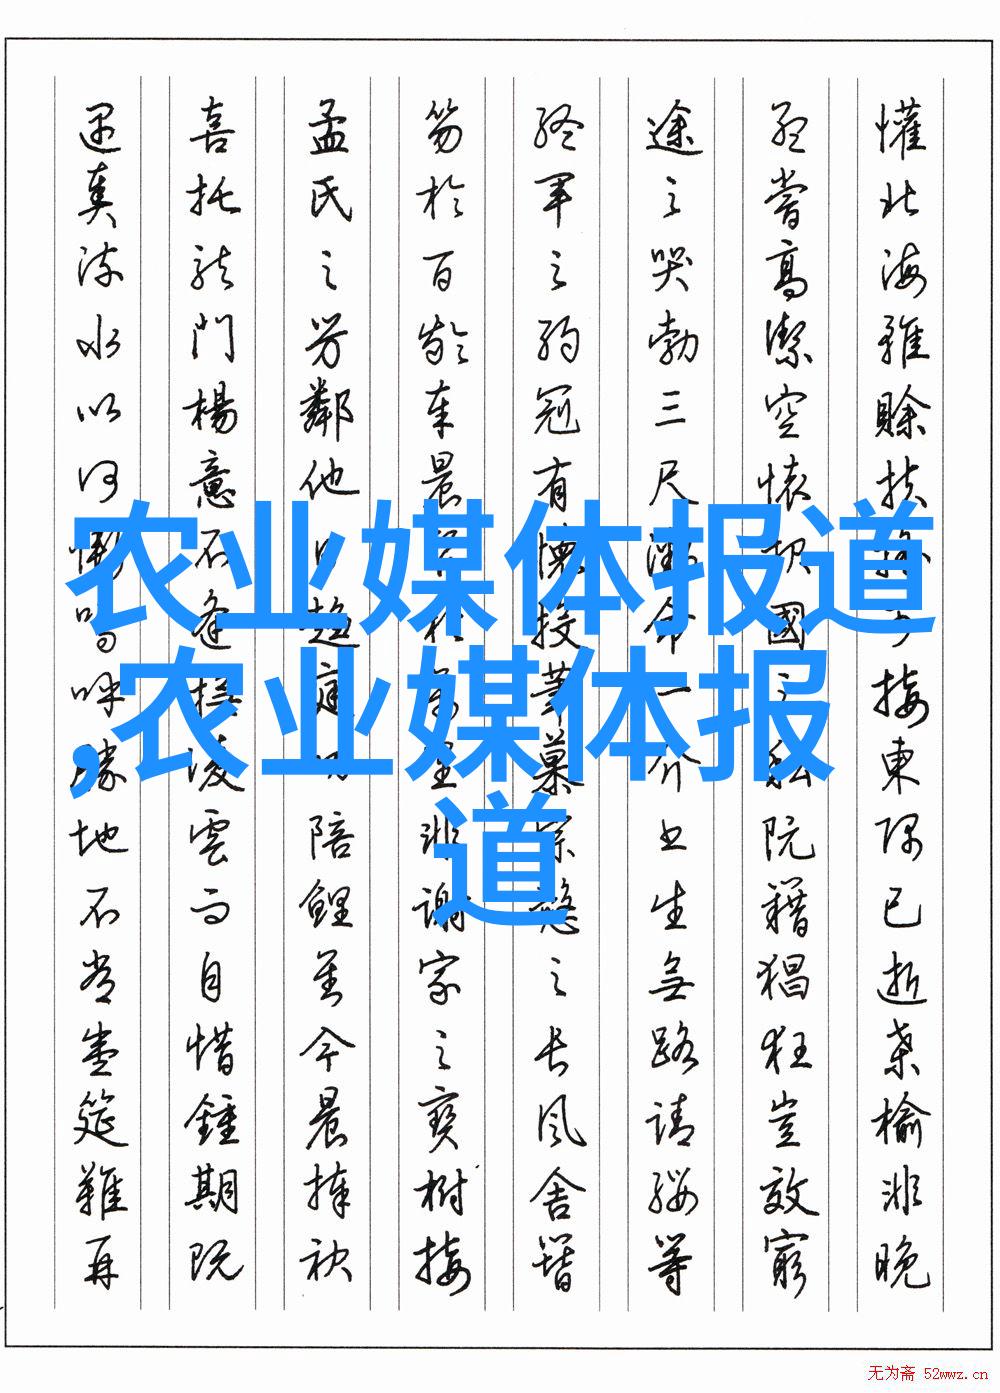 懽北海雖賒扶搖可接東隅已逝桑榆非晚
孟嘗高潔空懷報國之私阮籍猖狂豈效窮
途之哭勃三尺微命一介書生無路請纓等
終軍之弱冠有懷投筆慕宗慤之長風舍簪
笏於百齡奉晨昏於萬里非謝家之寶樹接
孟氏之芳鄰他日趨庭叨陪鯉對今晨捧袂
喜托龍門楊意不逢撫凌雲而自惜鍾期既
遇奏流水以何慚嗚呼勝地不常盛筵難再
农业媒体报道
,农业媒体报
道
无为斋 52wwz.cn